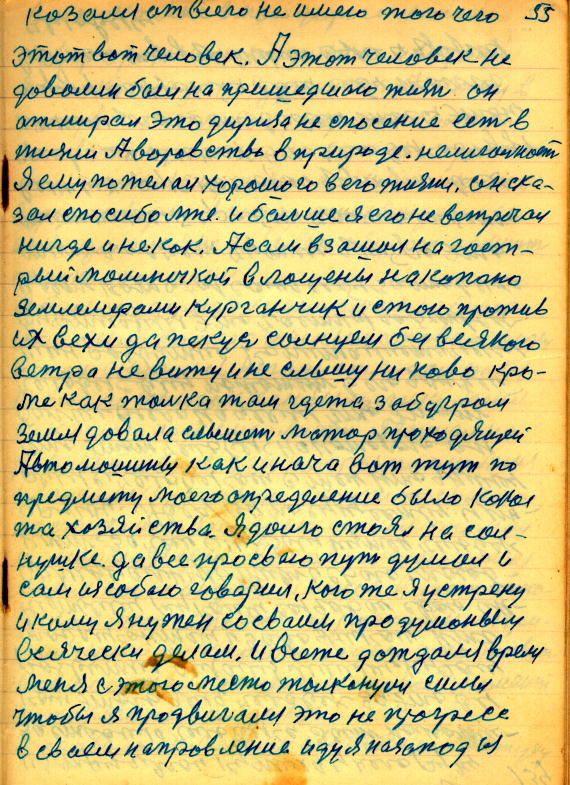 козоли от всего не имею того чего 55
этот вот человек. А этот человек не
доволин был на пришедшаго жить он
отмирал это дириза не спосение есть в
жизни А воровство в природе. нелигичност
Я ему пожелал хорошого в его жизни, он ска-
зал спосибо тже. и больше я его не встречал
нигде и некок. А сам взашол на гост-
рый малиночкой в лощены накопано
землемерами курганчик и стою против
их вехи да пекуся солнцем без всякого
ветра не вижу и не слышу ни ково кро-
ме как толка там гдета за бугром
земля довала слышет матор проходящей
Автомашины как и нача вот тут по
предмету моего определение было кокое
та хозяйства. Я долго стоял на сол-
нушке. да все просвою путь думал и
сам и собою говарил, кого же я устрену
и кому я нужен со своим продумоным
всячески делам. И всеже дождался время
меня с этого место толконули силы
чтобы я продвигался это не прогресс
в своем напровление иду я назапод и я